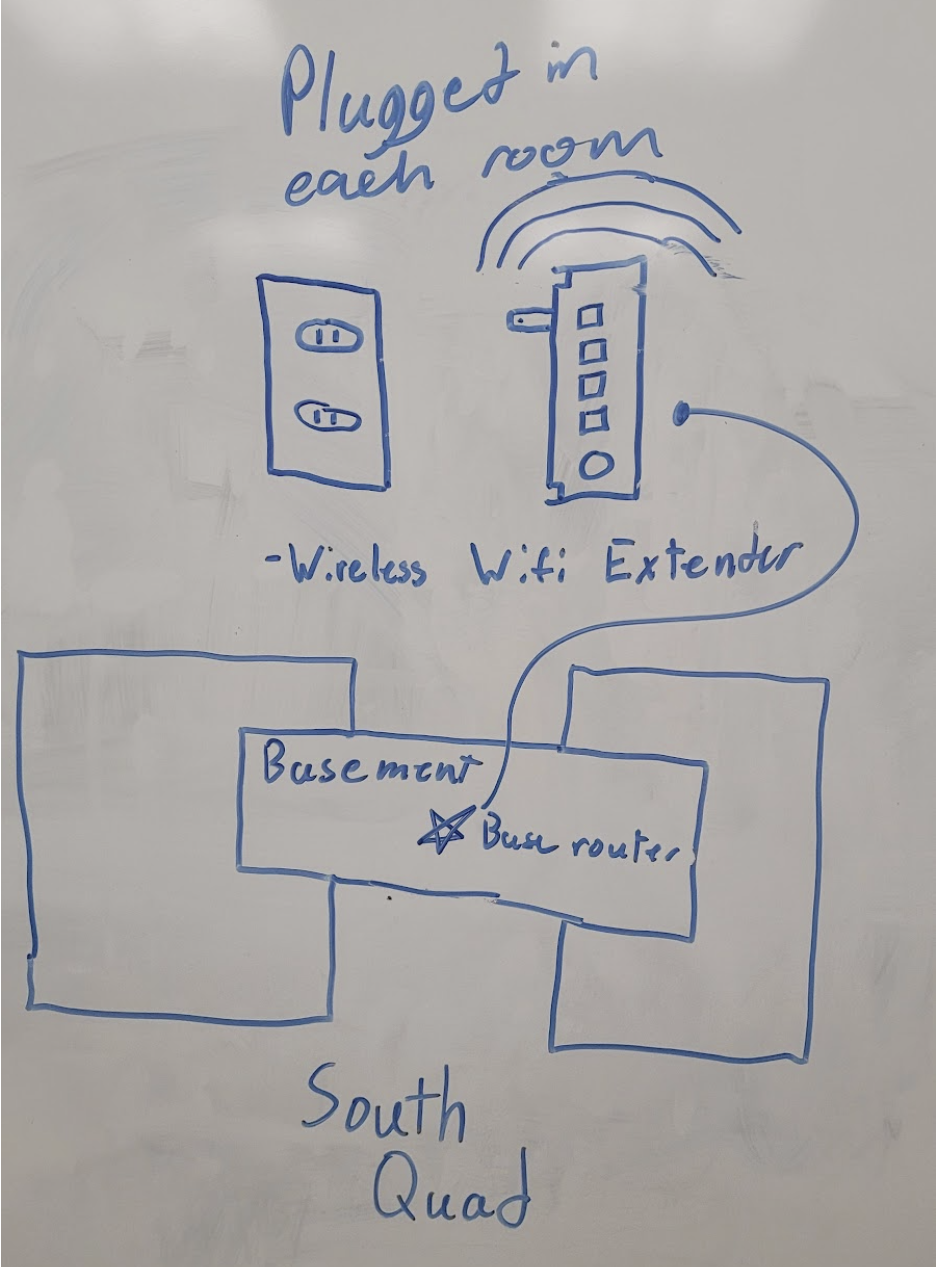 Plugged in
each room
-Wireless Wifi Extender
Basement
Base router
South
Quad